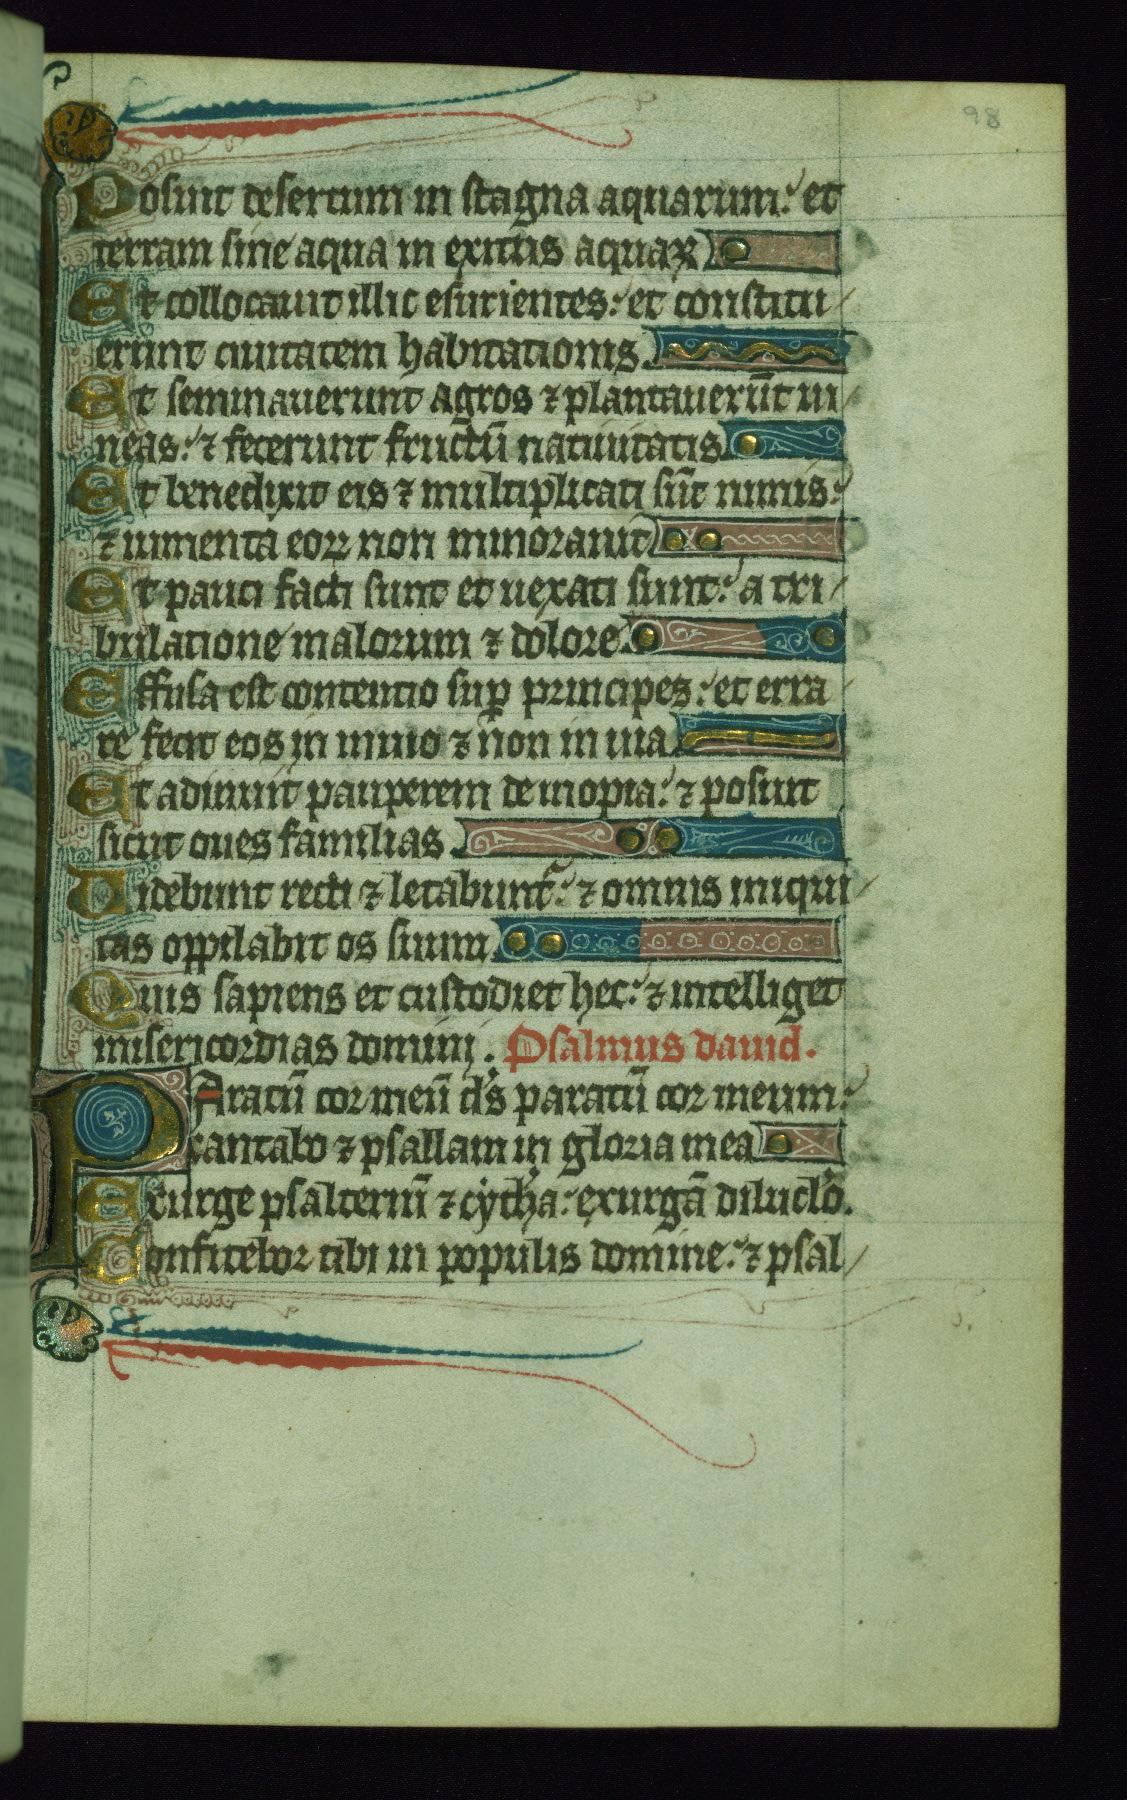 98
Posuit desertum in stagna aquarum: et
terram sine aqua in exitus aquaꝝ
Et collocauit illic esurientes: et constitu
erunt ciuitatem habitationis.
Et seminauerunt agros ⁊ plantauerūt ui
neas: ⁊ fecerunt fructū natiuitatis
Et benedixit eis ⁊ multiplicati sūt nimis:
⁊ iumenta eoꝝ non minorauit
Et pauci facti sunt et uexati sunt: a tri
bulatione malorum ⁊ dolore.
Effusa est contentio suꝑ principes: et erra
re fecit eos in inuio ⁊ non in uia.
Et adiuuit pauperem de inopia: ⁊ posuit
sicut oues familias.
Uidebunt recti ⁊ letabuntᷣ: ⁊ omnis iniqui
tas oppilabit os suum.
Quis sapiens et custodiet hec: ⁊ intelliget
misericordias domini. Psalmus dauid.
Paratū cor meū dˢs paratū cor meum:
cantabo ⁊ psallam in gloria mea
Exurge psalteriū ⁊ cytħa: exurgā diluclo.
Confitebor tibi in populis domine: ⁊ psal